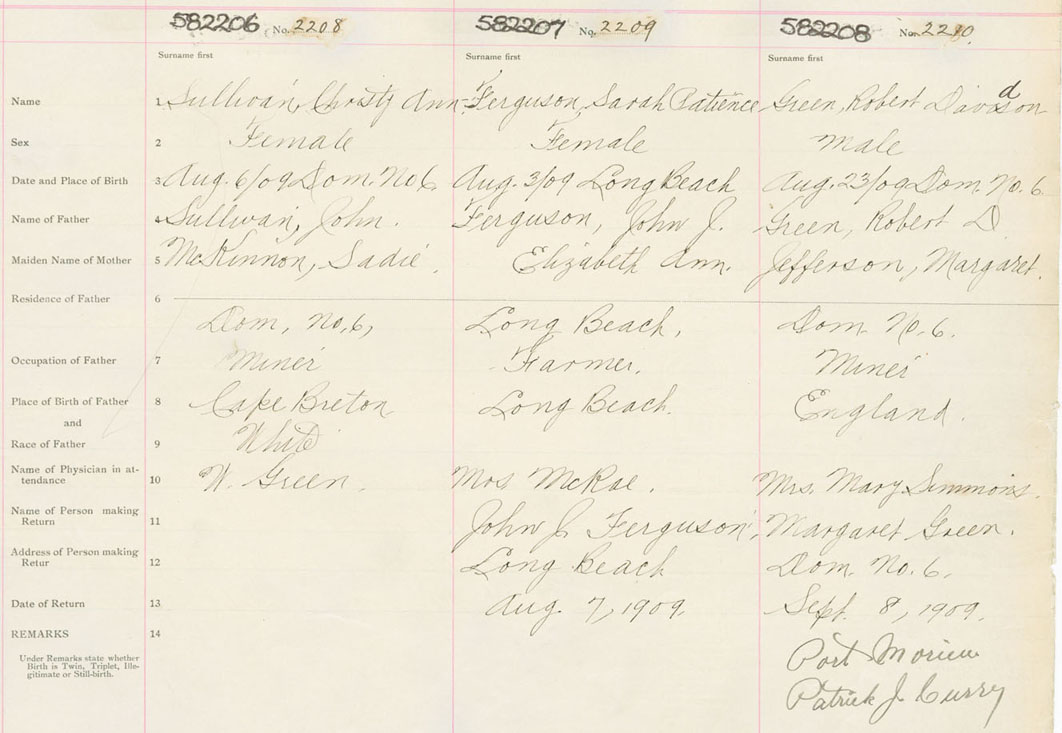 582206 No. 2208 582207 No. 2209 582208 No. 2210
Surname first Surname first Surname first
Name 1 Sullivan, Christy Ann Ferguson, Sarah Patience Green, Robert Davidson
Sex 2 Female Female Male
Date and Place of Birth 3 Aug. 6/09 Dom. No 6 Aug. 3/09 Long Beach Aug. 23/09 Dom. No. 6
Name of Father 4 Sullivan, John. Ferguson, John J. Green, Robert D
Maiden Name of Mother 5 McKinnon, Sadie. Elizabeth Ann. Jefferson, Margaret.
Residence of Father 6
Dom, No, 6, Long Beach. Dom No. 6.
Occupation of Father 7 Miner Farmer. Miner
Place of Birth of Father 8 Cape Breton Long Beach. England.
and
Race of Father 9 White
Name of Physician in at-
tendance 10 W. Green. Mrs McRae. Mrs. Mary Simmons.
Name of Person making
Return 11 John J. Ferguson, Margaret Green.
Address of Person making
Retur 12 Long Beach Dom. No. 6.
Date of Return 13 Aug. 7, 1909. Sept. 8, 1909.
REMARKS 14
Under Remarks state whether
Birth is Twin, Triplet, Ille-
gitimate or Still-birth.
Port Morien
Patrick J. Curry